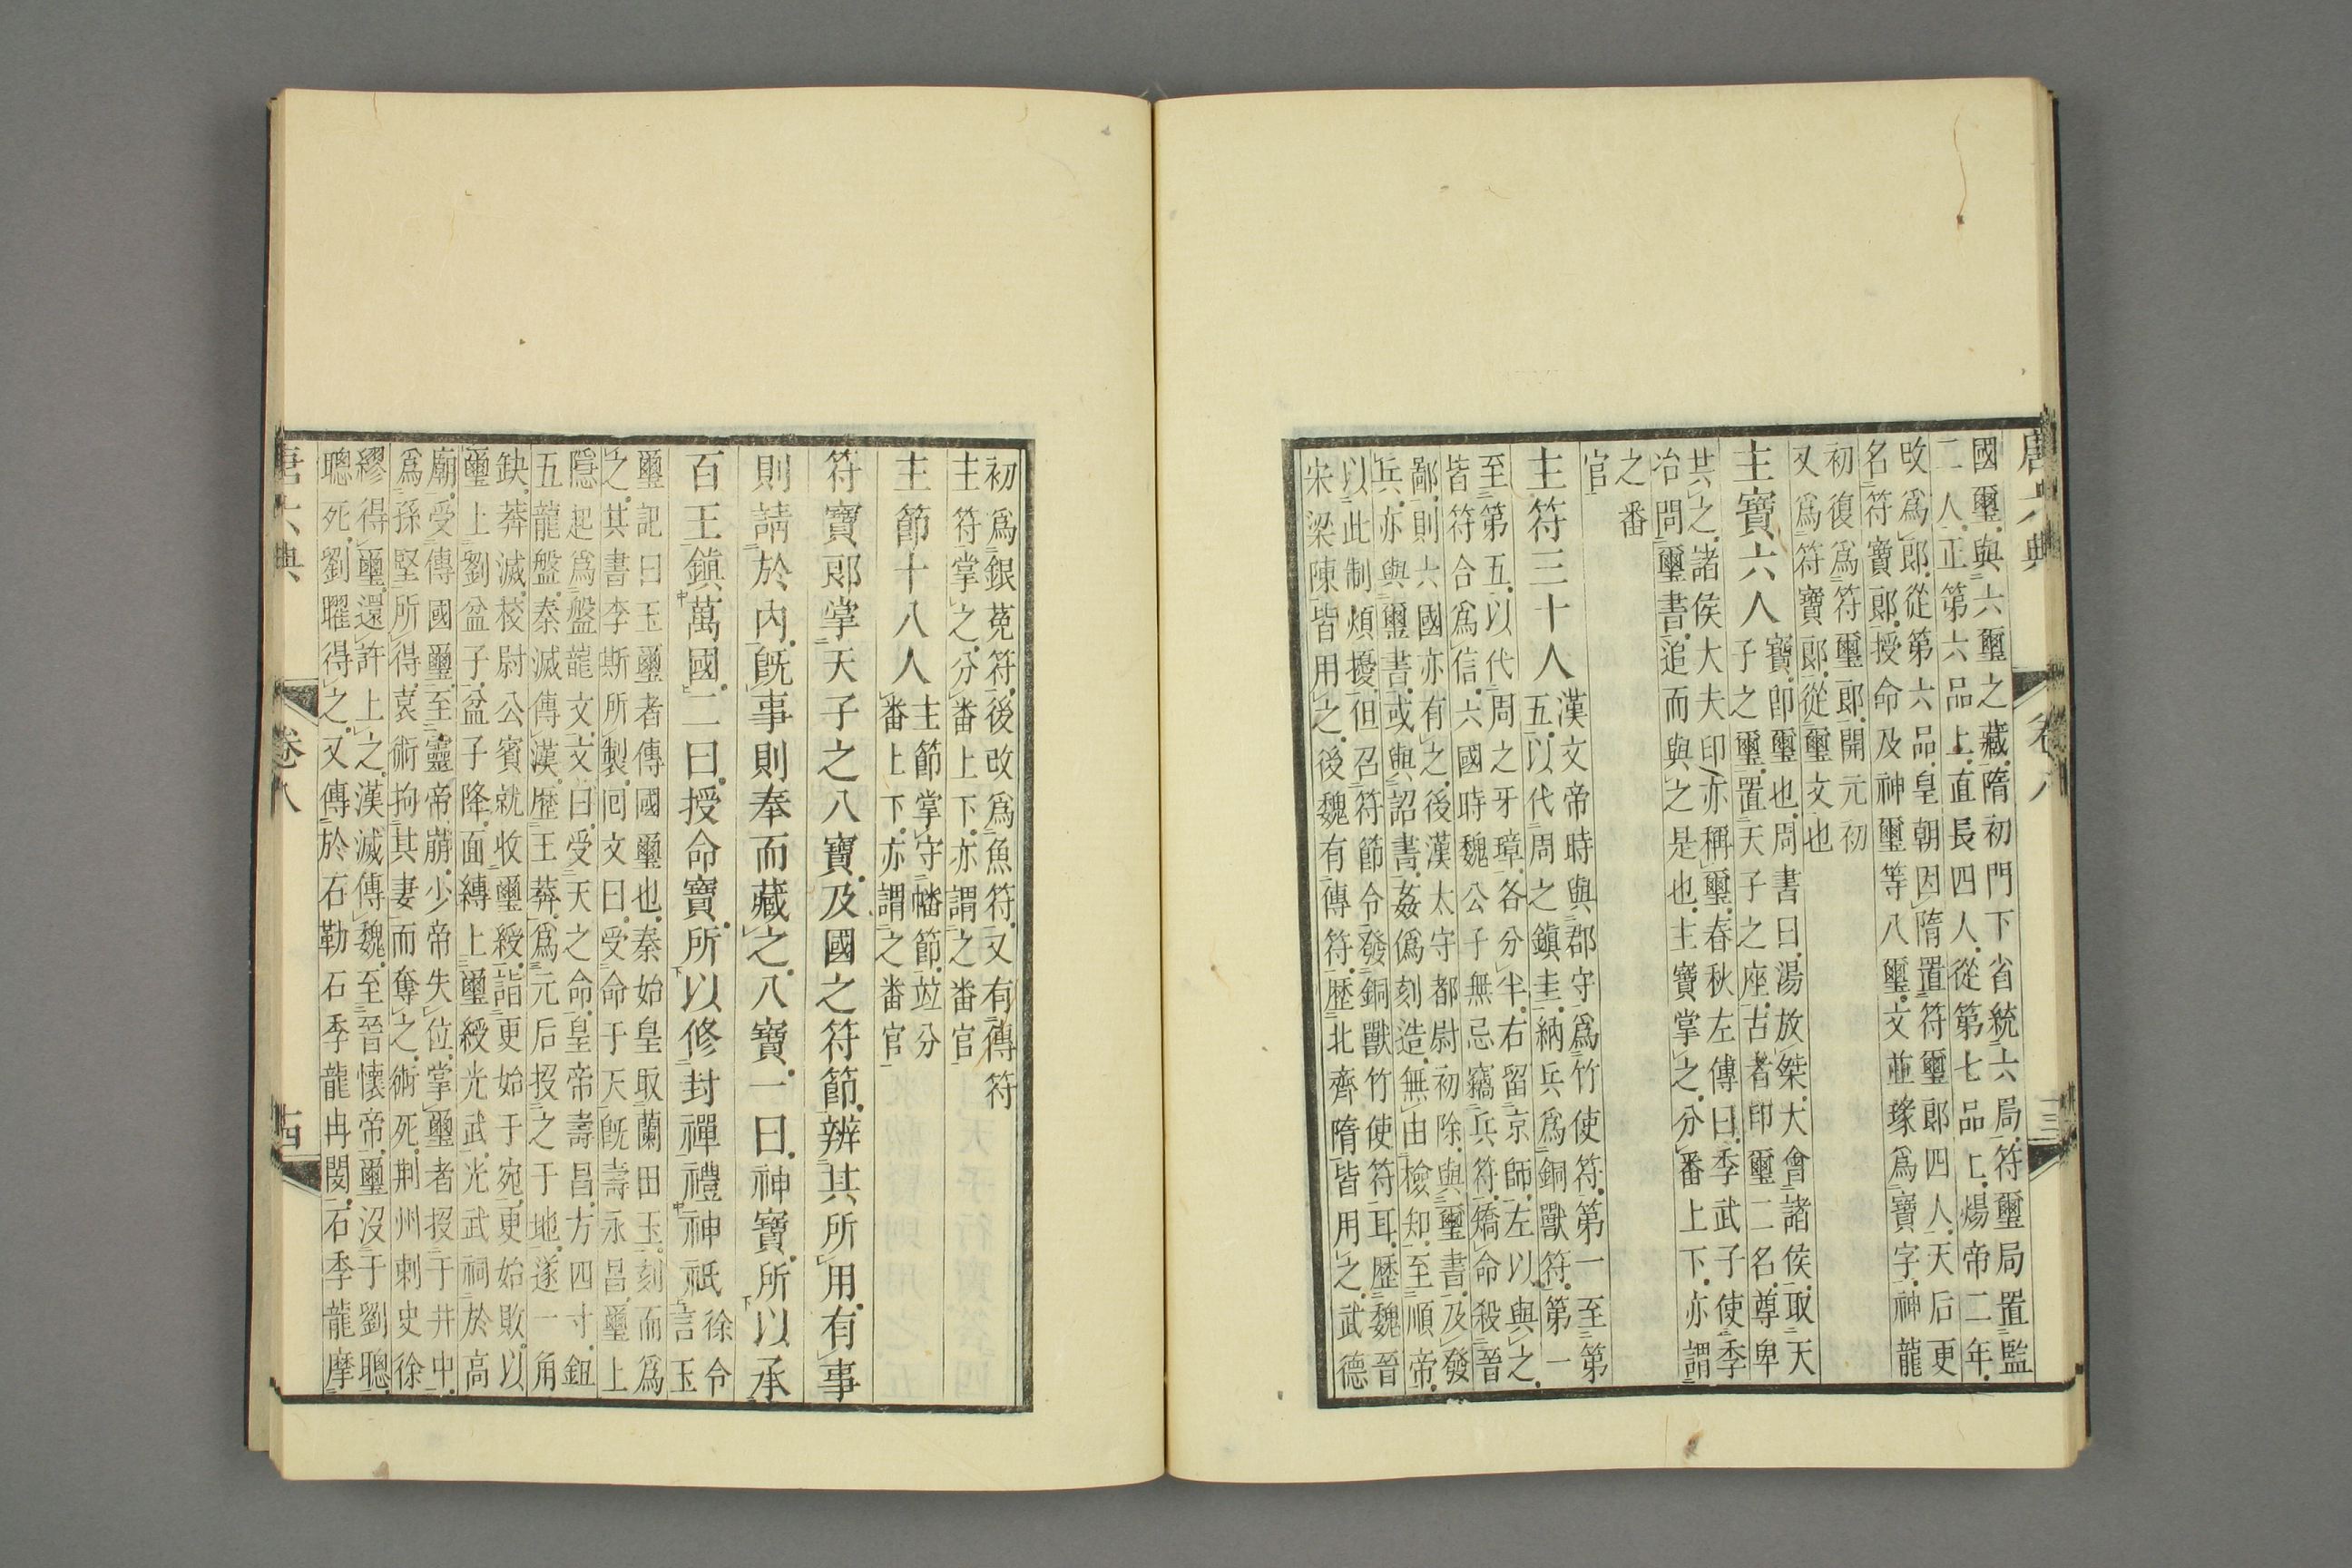 唐六典 卷八 十三
國璽與六璽之藏隋初門下省統六局符璽局置監
二人正第六品上直長四人從第七品上煬帝二年
改爲郎從第六品皇朝因隋置符璽郎四人天后更
名符寶郎授命及神璽等八璽文並琢爲寶字神龍
初復爲符璽郎開元初
又爲符寶郎從璽文也
主寶六人
寶卽璽也周書曰湯放桀大會諸侯取天
子之璽置天子之座古者印璽二名尊卑
共之諸侯大夫印亦稱璽春秋左傳曰季武子使季
冶問璽書追而與之是也主寶掌之分番上下亦謂
之番
官
主符三十人
漢文帝時與郡守爲竹使符第一至第
五以代周之鎮圭納兵爲銅獸符第一
至第五以代周之牙璋各分半右留京師左以與之
皆符合爲信六國時魏公子無忌竊兵符矯命殺晉
鄙則六國亦有之後漢太守都尉初除與璽書及發
兵亦與璽書或與詔書姦僞刻造無由檢知至順帝
以此制煩擾但召符節令發銅獸竹使符耳歷魏晉
宋梁陳皆用之後魏有傳符歷北齊隋皆用之武德
初爲銀菟符後改爲魚符又有傳符
主符掌之分番上下亦謂之番官
主節十八人
主節掌守幡節竝分
番上下亦謂之番官
符寶郎掌天子之八寶及國之符節辨其所用有事
則請於內旣事則奉而藏之八寶一曰神寶所以承
百王鎮萬國二曰授命寶所以修封禪禮神祇
徐令
言玉
璽記曰玉璽者傳國璽也秦始皇取蘭田玉刻而爲
之其書李斯所製回文曰受命于天旣壽永昌璽上
隱起爲盤龍文文曰受天之命皇帝壽昌方四寸鈕
五龍盤秦滅傳漢歷王莽爲元后投之于地遂一角
缺莽滅校尉公賓就收璽綬詣更始于宛更始敗以
璽上劉盆子盆子降面縛上璽綬光武光武祠於高
廟受傳國璽至靈帝崩少帝失位掌璽者投于井中
爲孫堅所得袁術拘其妻而奪之術死荆州刺史徐
繆得璽還許上之漢滅傳魏至晉懷帝璽沒于劉聰
聰死劉曜得之又傳於石勒石季龍冉閔石季龍摩
唐六典 卷八 十四